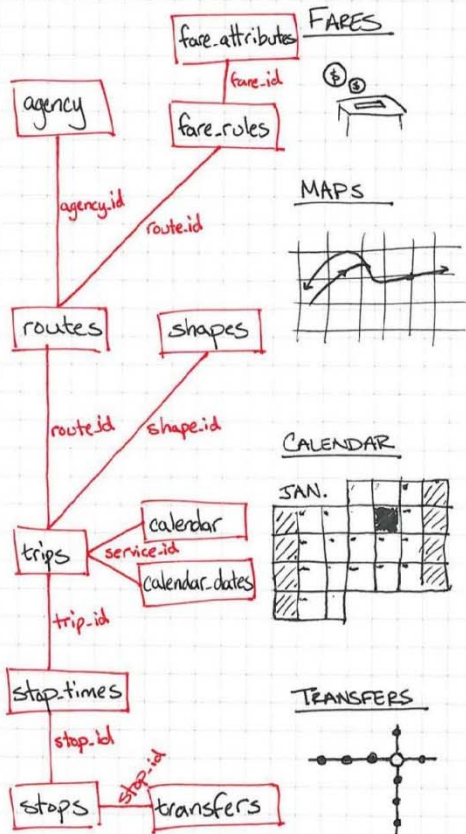 fare_attributes
FARES
fare_id
agency
fare_rules
agency_id
route_id
MAPS
routes
shapes
route_id
shape_id
CALENDAR
JAN.
calendar
service_id
trips
calendar_dates
trip_id
stop_times
TRANSFERS
stop_id
stop_id
stops
transfers
$
$